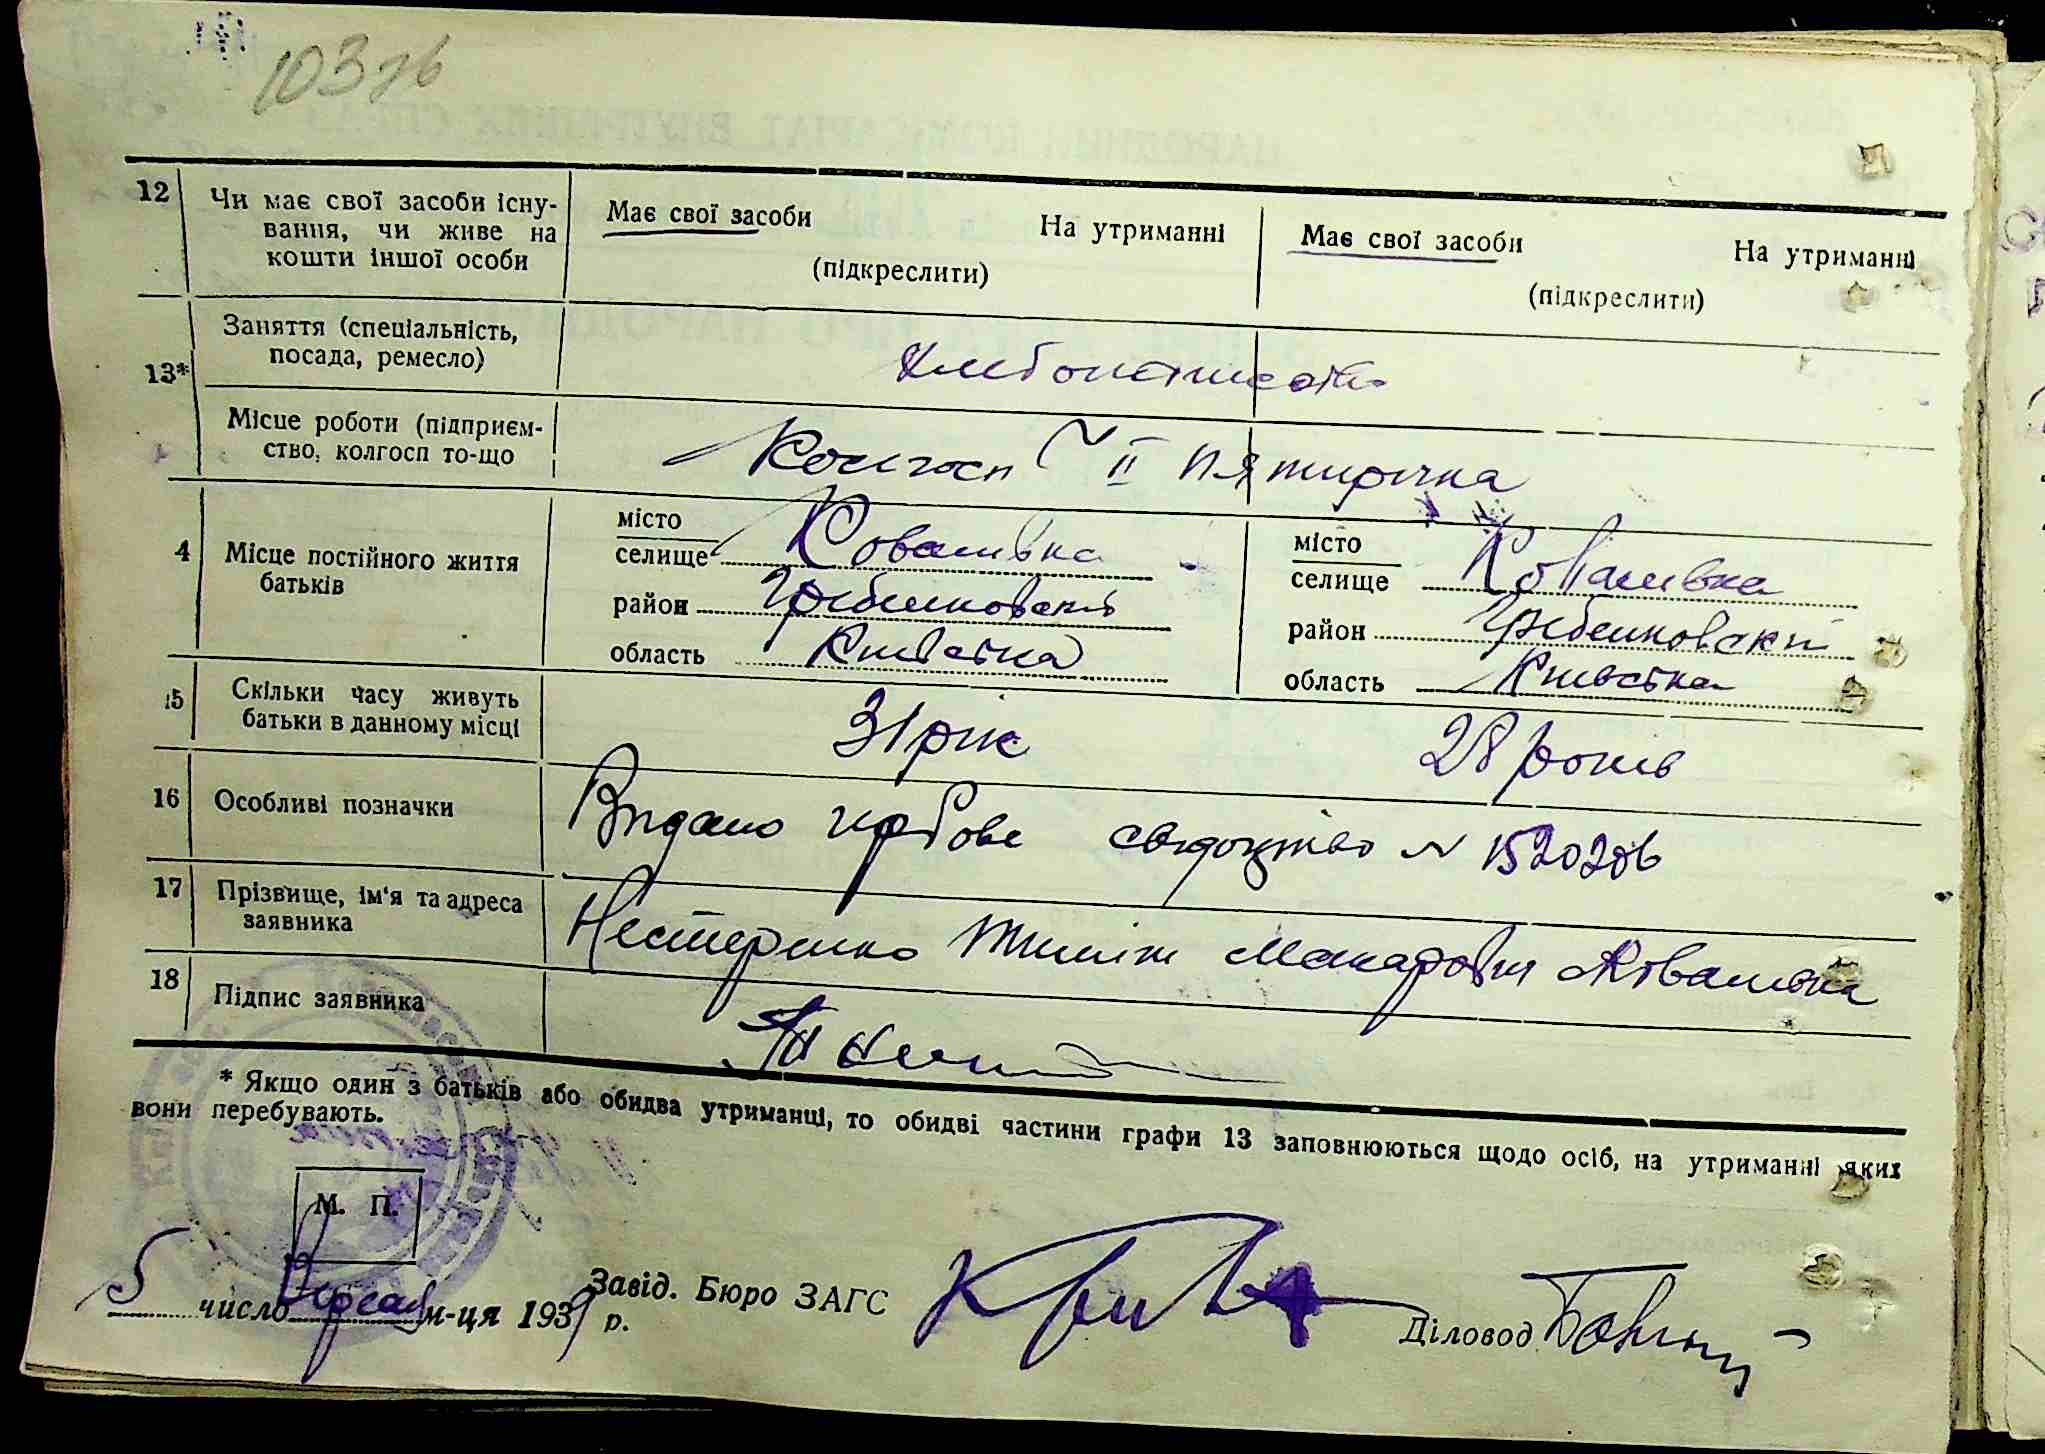 103зв
12 Чи має свої засоби існу-
вання, чи живе на
кошти іншої особи
Має свої засоби На утриманні
(підкреслити)
Має свої засоби На утриманні
(підкреслити)
13*
Заняття (спеціальність,
посада, ремесло)
Хлібопашество
Місце роботи (підприєм-
ство, колгосп то-що
Колгосп II Пятирічка
4 Місце постійного життя
батьків
місто
селище Ковалівка
район Гребенковский
область Київська
місто
селище Ковалівка
район Гребенковский
область Київська
15 Скільки часу живуть
батьки в данному місці
31 рік 28 років
16 Особливі позначки
Видано гербове свидоцтво №
17 Прізвище, ім'я та адреса
заявника
Нестеренко Макарович Ковалівка
18 Підпис заявника
* Якщо один з батьків або обидва утриманці, то обидві частини графи 13 заповнюються щодо осіб, на утриманні яких
вони перебувають.
М. П.
5 число м-ця 1939 р.
Завід. Бюро ЗАГС
Діловод